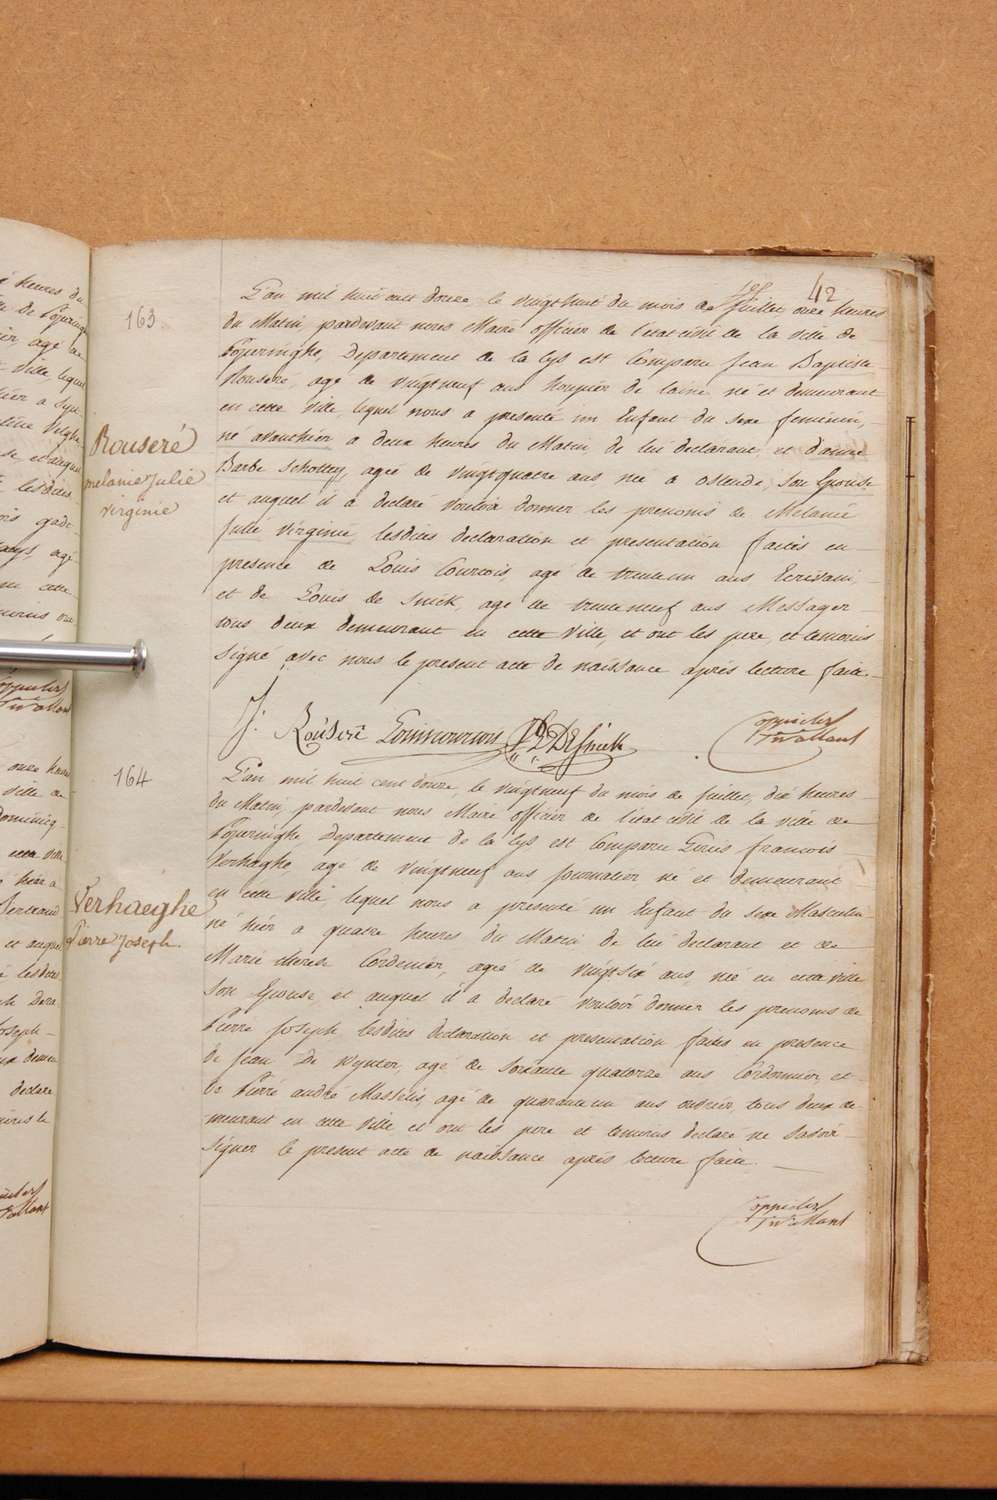 42
163.
Rouseré
melanie Julie
virginie
L'an mil huit cent douze, le vingthuit du mois de Juillet onze heures
du Matin, pardevant nous Maire officier de l'etat civil de la ville de
Poperinghe, Departement de la Lys est Comparu Jean Baptiste
Rouseré, agé de vingtneuf ans houpier de laine né et demeurant
en cette ville, lequel nous a presenté un Enfant du sexe feminin,
né avanthier a deux heures du Matin de lui declarant, et d'anne
Barbe Schottey, agée de vingtquatre ans née a ostende, Son Epouse
et auquel il a declaré vouloir donner les prenoms de Melanie
Julie Virginie, lesdites declaration et presentation faites en
presence de Louis Courtois, agé de trenteun ans Ecrivain,
et de Louis de Snick, agé de trenteneuf ans Messager
tous deux demeurant en cette ville, et ont les pere, et temoins
signé avec nous le present acte de naissance après lecture faite.
J: Rouseré Louis courtois
164
Verhaeghe
Pierre Joseph.
L'an mil huit cent douze, le vingtneuf du mois de Juillet, dix heures
du Matin, pardevant nous Maire officier de l'etat civil de la ville de
Poperinghe, Departement de la Lys est Comparu Louis francois
Verhaeghe, agé de vingtneuf ans journalier né et demeurant
en cette ville, lequel nous a presenté un Enfant du sexe Masculin
né hier a quatre heures du Matin de lui declarant et de
Marie therese Cordenier, agée de vingtsix ans, née en cette ville
Son Epouse, et auquel il a declaré vouloir donner les prenoms de
Pierre Joseph lesdites declaration et presentation faites en presence
de Jean De Wynter, agé de soixante quatorze ans Cordonnier, et
de Pierre andré Masselis, agé de quaranteun ans ouvrier, tous deux de-
meurant en cette ville et ont les pere et temoins declaré ne savoir
signer le present acte de naissance après lecture faite.